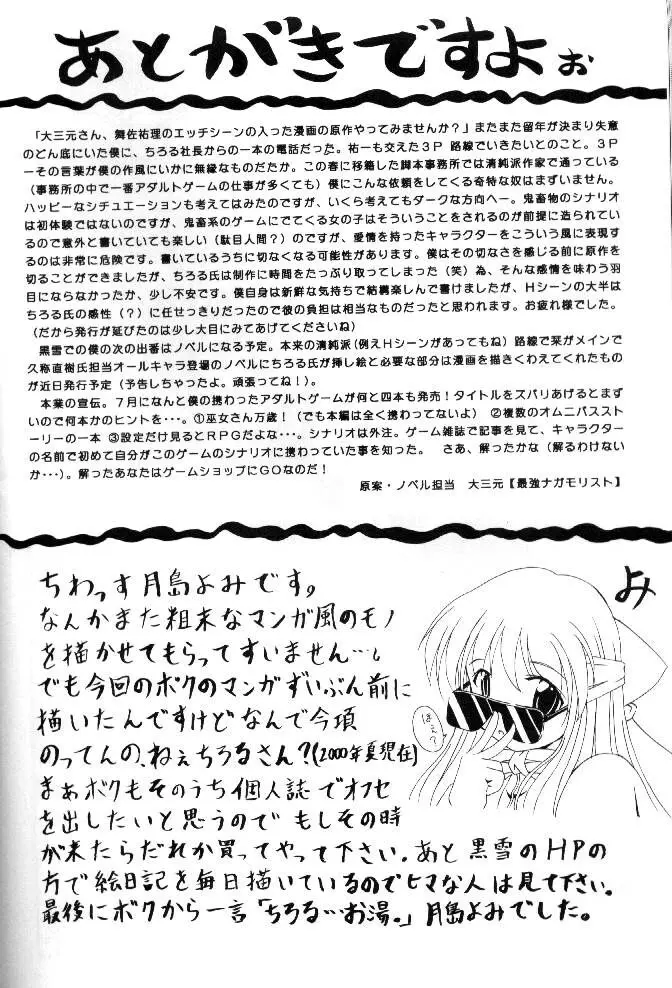 あとがきですよぉ
「大三元さん、舞佐祐理のエッチシーンの入った漫画の原作やってみませんか？」またまた留年が決まり失意
のどん底にいた僕に、ちろる社長からの一本の電話だった。祐一も交えた３Ｐ路線でいきたいとのこと。３Ｐ
ーその言葉が僕の作風にいかに無縁なものだたか。この春に移籍した脚本事務所では清純派作家で通っている
（事務所の中で一番アダルトゲームの仕事が多くても）僕にこんな依頼をしてくる奇特な奴はまずいません。
ハッピーなシチュエーションも考えてはみたのですが、いくら考えてもダークな方向へー。鬼畜物のシナリオ
は初体験ではないのですが、鬼畜系のゲームにでてくる女の子はそういうことをされるのが前提に造られてい
るので意外と書いていても楽しい（駄目人間？）のですが、愛情を持ったキャラクターをこういう風に表現す
るのは非常に危険です。書いているうちに切なくなる可能性があります。僕はその切なさを感じる前に原作を
切ることができましたが、ちろる氏は制作に時間をたっぷり取ってしまった（笑）為、そんな感情を味わう羽
目にならなかったか、少し不安です。僕自身は新鮮な気持ちで結構楽しんで書けましたが、Ｈシーンの大半は
ちろる氏の感性（？）に任せっきりだったので彼の負担は相当なものだったと思われます。お疲れ様でした。
（だから発行が延びたのは少し大目にみてあげてくださいね）
黒雪での僕の次の出番はノベルになる予定。本来の清純派（例えＨシーンがあってもね）路線で栞がメインで
久弥直樹氏担当オールキャラ登場のノベルにちろる氏が挿し絵と必要な部分は漫画を描きくわえてくれたもの
が近日発行予定（予告しちゃったよ。頑張ってね！）。
本業の宣伝。７月になんと僕の携わったアダルトゲームが何と四本も発売！タイトルをズバリあげるとまず
いので何本かのヒントを･･･。①巫女さん万歳！（でも本編は全く携わってないよ）　②複数のオムニバススト
ーリーの一本　③設定だけ見るとＲＰＧだよな･･･。シナリオは外注。ゲーム雑誌で記事を見て、キャラクター
の名前で初めて自分がこのゲームのシナリオに携わっていた事を知った。　さあ、解ったかな（解るわけない
か･･･）。解ったあなたはゲームショップにＧＯなのだ！
原案・ノベル担当　大三元【最強ナガモリスト】
ちわっす月島よみです。
なんかまた粗末なマンガ風のモノ
を描かせてもらってすいません…。
でも今回のボクのマンガずいぶん前に
描いたんですけどなんで今頃
のってんの、ねぇちろるさん？(2000年夏現在)
まぁボクもそのうち個人誌でオフセ
を出したいと思うのでもしその時
が来たらだれか買ってやって下さい。あと黒雪のHPの
方で絵日記を毎日描いているのでヒマな人は見て下さい。
最後にボクから一言「ちろる…お湯。」月島よみでした。
よみ